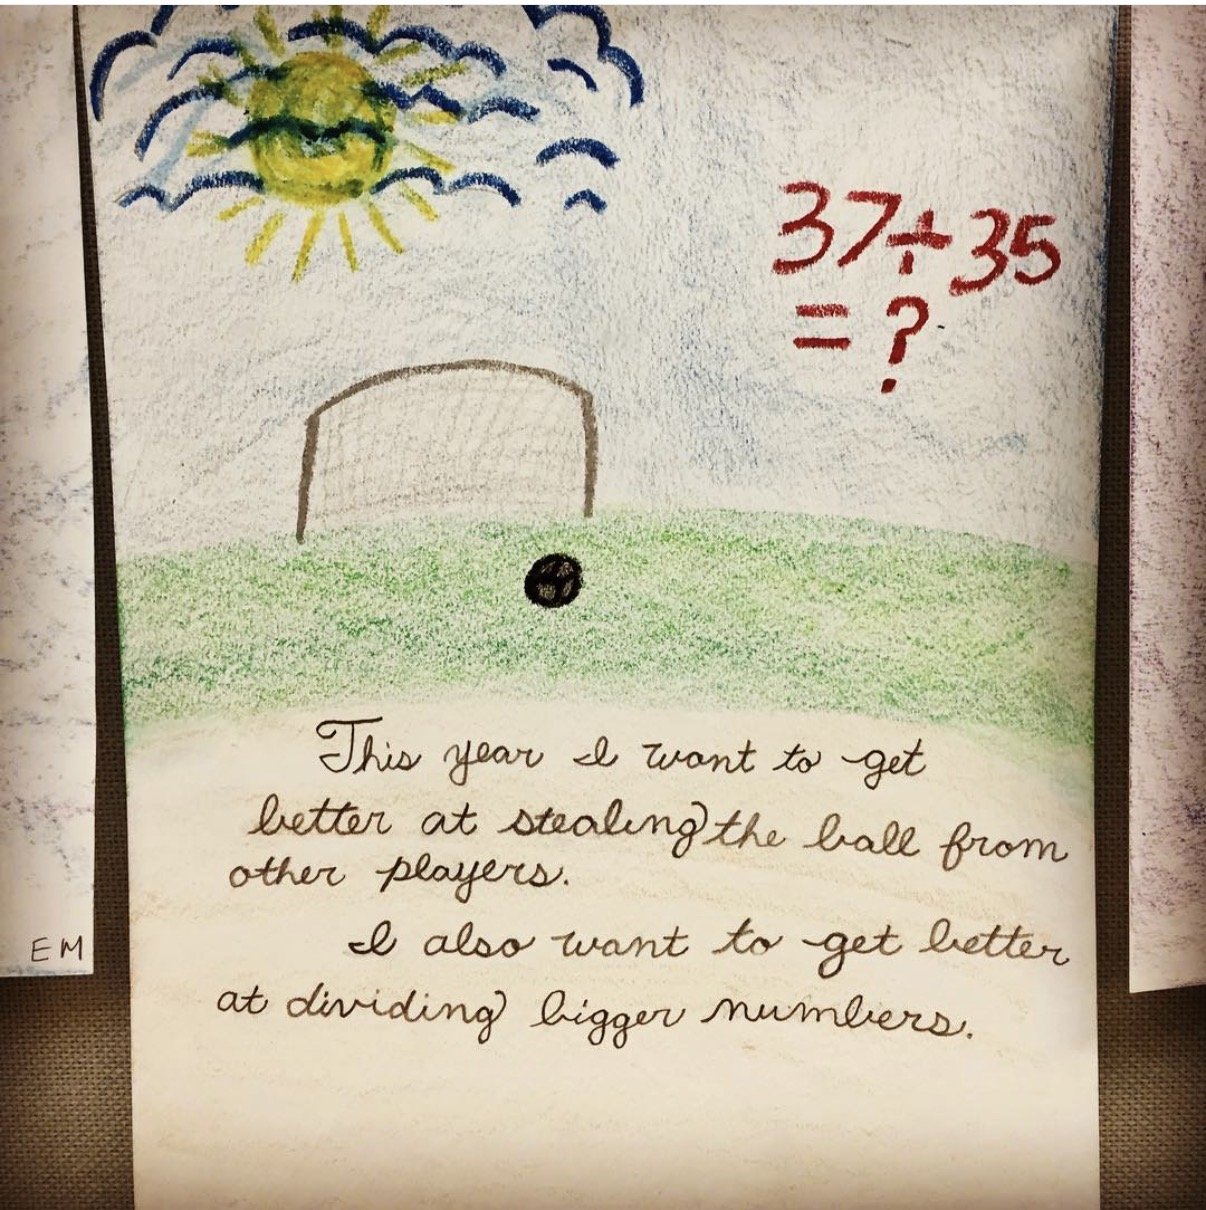 37÷35
= ?
This year I want to get
better at stealing the ball from
other players.
I also want to get better
at dividing bigger numbers.
EM